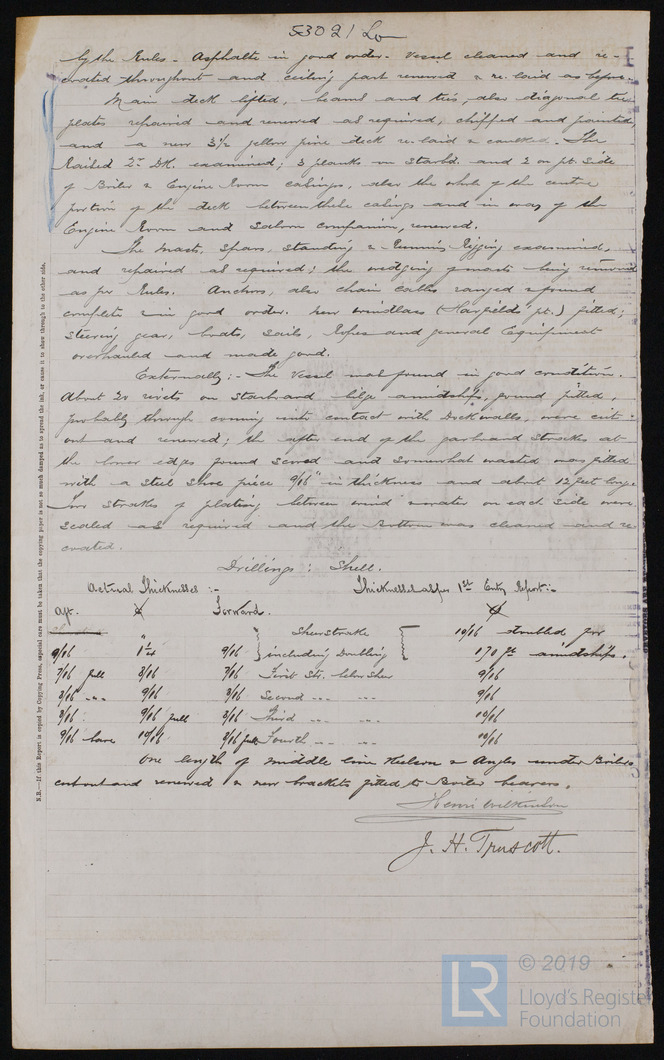 53021 Lo
by the Rules. Asphalte in good order. Vessel cleaned and re-
coated throughout and ceiling part renewed & re-laid as before.
Main deck lifted, beams and ties, also diagonal tie
plates repaired and renewed as required, chipped and painted,
and a new 3½ yellow pine deck re-laid & caulked. The
Raised 2r Dk. examined; 3 planks in Starbd. and 2 on pt. side
of Boiler & Engine Room casings, also the whole of the centre
portion of the deck between these casings and in way of the
Engine Room and Saloon companion, renewed.
The Masts, Spars, Standing & Running Rigging examined,
and repaired as required; the wedging of masts being removed
as per Rules. Anchors, also chain cables ranged & found
complete & in good order. New windlass (Harfield's pt.) fitted;
Steering gear, boats, sails, Ropes and general Equipment
overhauled and made good.
Externally:- The Vessel was found in good condition.
About 20 rivets on starboard bilge amidships, found pitted,
probably through coming into contact with Dock walls, were cut
out and renewed; the after end of the garboard strakes at
the lower edges found scored and somewhat wasted was fitted
with a steel Shoe piece 9/16" in thickness and about 12 feet long.
Two strakes of plating between wind & water on each side were
scaled as required and the Bottom was cleaned and re
coated.
Drillings: Shell.
Actual Thicknesses :- Thicknesses as per 1st Entry Report:-
Aft. Forward.
9/16 1¼ 9/16 Sheerstrake including Doubling 10/16 doubled for
170 ft amidships.
7/16 full 8/16 7/16 First Str. below sheer 9/16
9/16 Second " " 9/16
9/16 full Third " " 10/16
9/16 bare 10/16 full Fourth " " 10/16
One length of middle line Keelson & Angles under Boilers
cut out and renewed & new brackets fitted to Boiler bearers.
Henri Wilkinson
J. H. Truscott.
N.B.—If this Report is copied by Copying Press, especial care must be taken that the copying paper is not so much damped as to spread the ink, or cause it to show through to the other side.
© 2019
LR
Lloyd's Register
Foundation